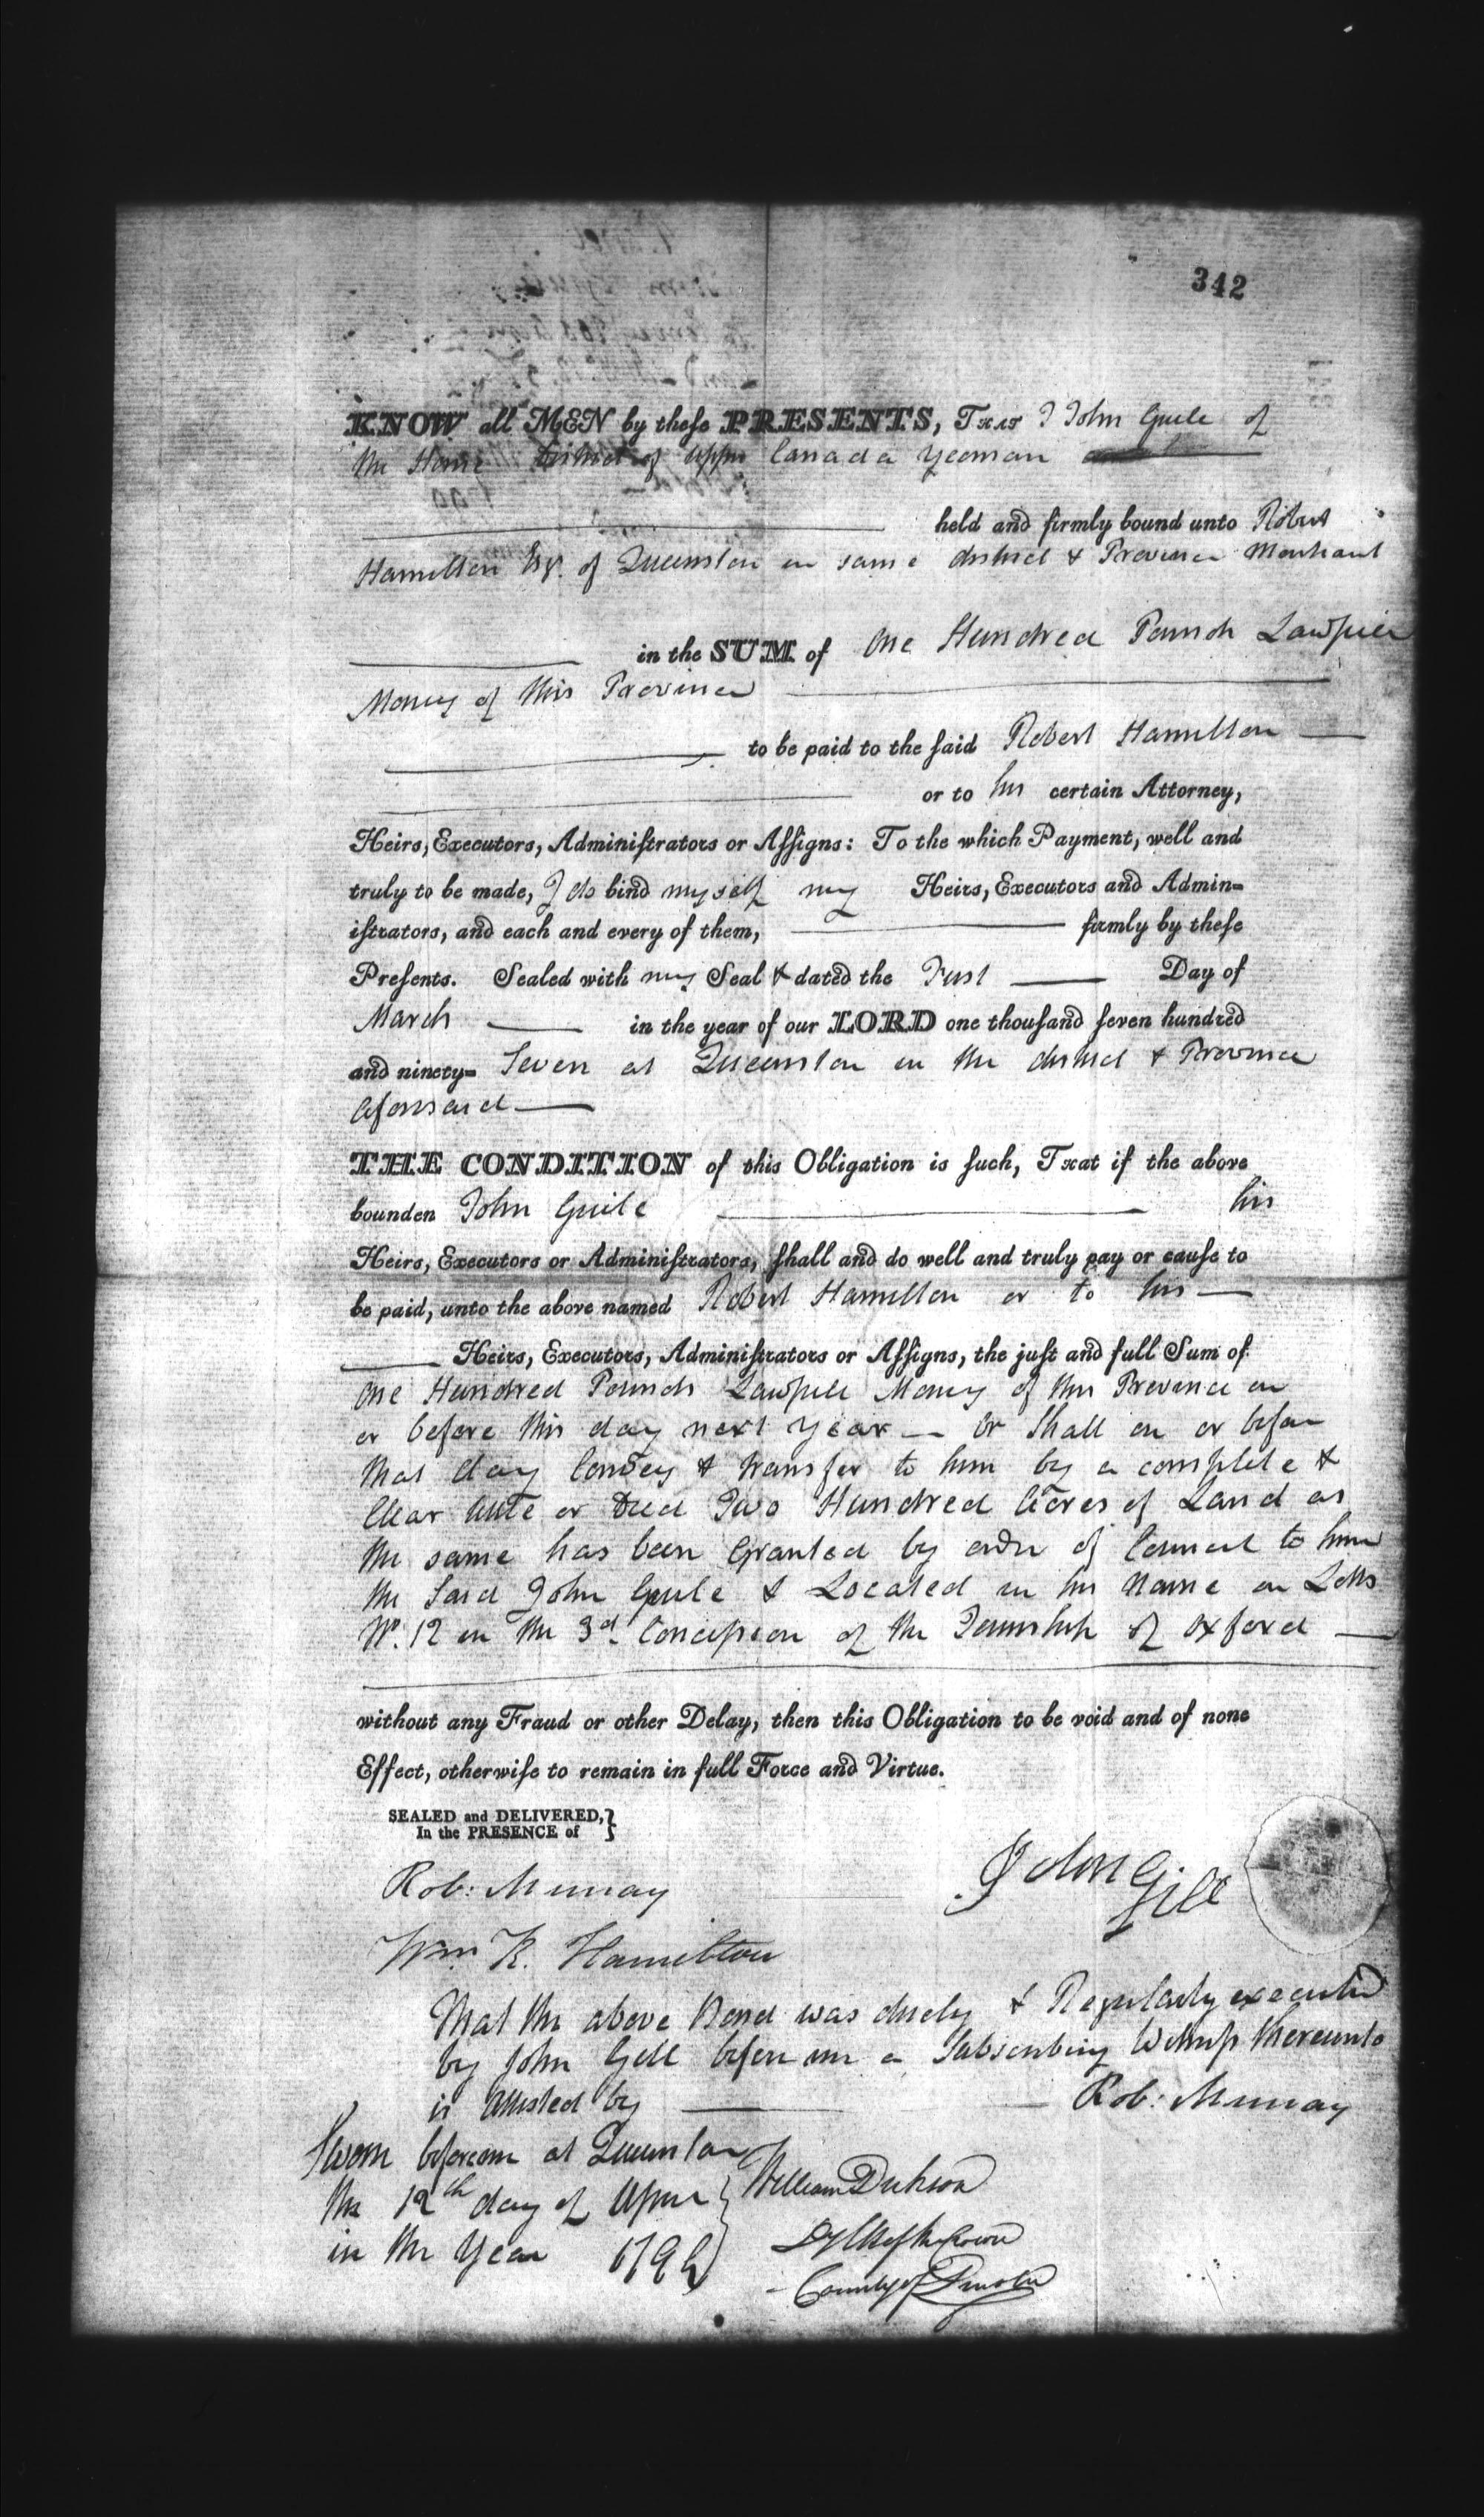 342
KNOW all MEN by these PRESENTS, THAT I John Guile of
the Home District of Upper Canada Yeoman
held and firmly bound unto Robert
Hamilton Esqr. of Queenston in same district & Province Merchant
in the SUM of One Hundred Pounds Lawfull
Money of this Province
to be paid to the said Robert Hamilton
or to his certain Attorney,
Heirs, Executors, Administrators or Assigns: To the which Payment, well and
truly to be made, I do bind myself my Heirs, Executors and Admin-
istrators, and each and every of them, firmly by these
Presents. Sealed with my Seal & dated the First Day of
March in the year of our LORD one thousand seven hundred
and ninety- Seven at Queenston in the district & Province
aforesaid
THE CONDITION of this Obligation is such, That if the above
bounden John Guile his
Heirs, Executors or Administrators, shall and do well and truly pay or cause to
be paid, unto the above named Robert Hamilton or to his
Heirs, Executors, Administrators or Assigns, the just and full Sum of
One Hundred Pounds Lawfull Money of this Province on
or before this day next year — Or Shall on or before
that day Convey & transfer to him by a complete &
Clear title or Deed Two Hundred Acres of Land as
the same has been Granted by order of Council to him
the Said John Guile & Located in his Name on Lotts
No. 12 in the 3d. Concession of the Township of Oxford
without any Fraud or other Delay, then this Obligation to be void and of none
Effect, otherwise to remain in full Force and Virtue.
SEALED and DELIVERED,
In the PRESENCE of
Rob: Murray
John Gill
Wm. R. Hamilton
That the above Bond was duely & Regularly executed
by John Gill before me a Subscribing Witness thereunto
is Attested by Rob: Murray
Sworn before me at Queenston
the 12th day of April
in the Year
William Dickson
Dy Clk of the Crown
County of Lincoln